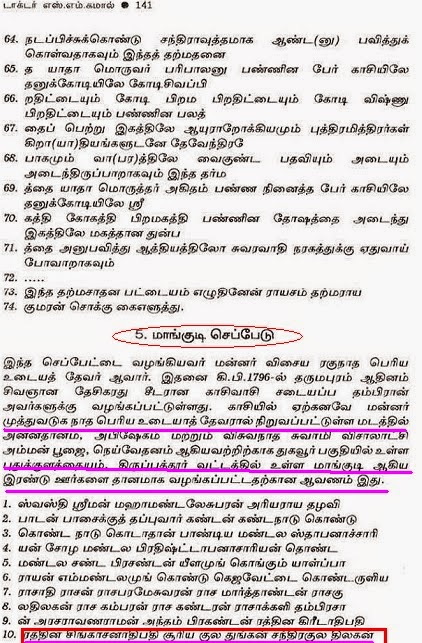 டாக்டர் எஸ்.எம்.கமால் ● 141
64. நடப்பிச்சுக்கொண்டு சந்திராவுத்தமாக ஆண்ட(னு) பவித்துக்
கொள்வதாகவும் இந்தத் தற்மதனை
65. த யாதா மொருவர் பரிபாலனு பண்ணின பேர் காசியிலே
தனுக்கோடியிலே கோடிசிவப்பி
66. றதிட்டையும் கோடி பிறம பிறதிட்டையும் கோடி விஷ்ணு
பிறதிட்டையும் பண்ணின பலத்
67. தைப் பெற்று இகத்திலே ஆயுராறோக்கியமும் புத்திரமித்திரர்கள்
கிறா(யா)தியங்களுடனே தேவேந்திரதே
68. பாகமும் வா(பர)த்திலே வைகுண்ட பதவியும் அடையும்
அடைந்திருப்பாறாகவும் இந்த தர்ம
69. த்தை யாதா மொருத்தர் அகிதம் பண்ண நினைத்த பேர் காசியிலே
தனுக்கோடியிலே ஸ்ரீ
70. கத்தி கோகத்தி பிறமகத்தி பண்ணின தோஷத்தை அடைந்து
இகத்திலே மகத்தான துன்ப
71. த்தை அனுபவித்து ஆத்தியத்திலோ சுவரவாதி நரகத்துக்கு ஏதுவாய்
போவாறாகவும்
72. .....
73. இந்த தற்மசாதன பட்டையம் எழுதினேன் ராயசம் தற்மராய
74. குமரன் சொக்கு கைஎளுத்து.
5. மாங்குடி செப்பேடு
இந்த செப்பேட்டை வழங்கியவர் மன்னர் விசைய ரகுநாத பெரிய
உடையத் தேவர் ஆவார். இதனை கி.பி.1796-ல் தருமபுரம் ஆதினம்
சிவஞான தேசிகரது சீடரான காசிவாசி சடையப்ப தம்பிரான்
அவர்களுக்கு வழங்கப்பட்டுள்ளது. காசியில் ஏற்கனவே மன்னர்
முத்துவடுக நாத பெரிய உடையாத் தேவரால் நிறுவப்பட்டுள்ள மடத்தில்
அன்னதானம், அபிஷேகம் மற்றும் விசுவநாத சுவாமி விசாலாட்சி
அம்மன் பூஜை, நெய்வேதனம் ஆகியவற்றிற்காக துகவூர் பகுதியில் உள்ள
பதுக்குளத்தையும், திருப்பத்தூர் வட்டத்தில் உள்ள மாங்குடி ஆகிய
இரண்டு ஊர்களை தானமாக வழங்கப்பட்டதற்கான ஆவணம் இது.
1. ஸ்வஸ்தி ஸ்ரீமன் மஹாமண்டலேசுபரன் அரியராய தழவி
2. பாடன் பாசைக்குத் தப்புவார் கண்டன் கண்டநாடு கொண்டு
3. கொண்ட நாடு கொடாதான் பாண்டிய மண்டல ஸ்தாபனாச்சாரி
4. யன் சோழ மண்டல பிரதிஷ்ட்டாபனாசாரியன் தொண்ட
5. மண்டல சண்ட பிரசண்டன் யீளமுங் கொங்கும் யாள்ப்பா
6. ராயன் எம்மண்டலமுங் கொண்டு கெஜவேட்டை கொண்டருளிய
7. ராசாதி ராசன் ராசபரமேசுவரன் ராச மார்த்தாண்டன் ராசகு
8. லதிலகன் ராச கம்பரன் ராச கண்டரன் ராசாக்கள் தம்பிரசா
9. ன் அரசராவணராமன் அந்தம் பிரகண்டன் ரத்தின கிரீடாதிபதி
10. ரத்தின சிங்காசனாதிபதி சூரிய குல துங்கன் சந்திரகுல திலகன்